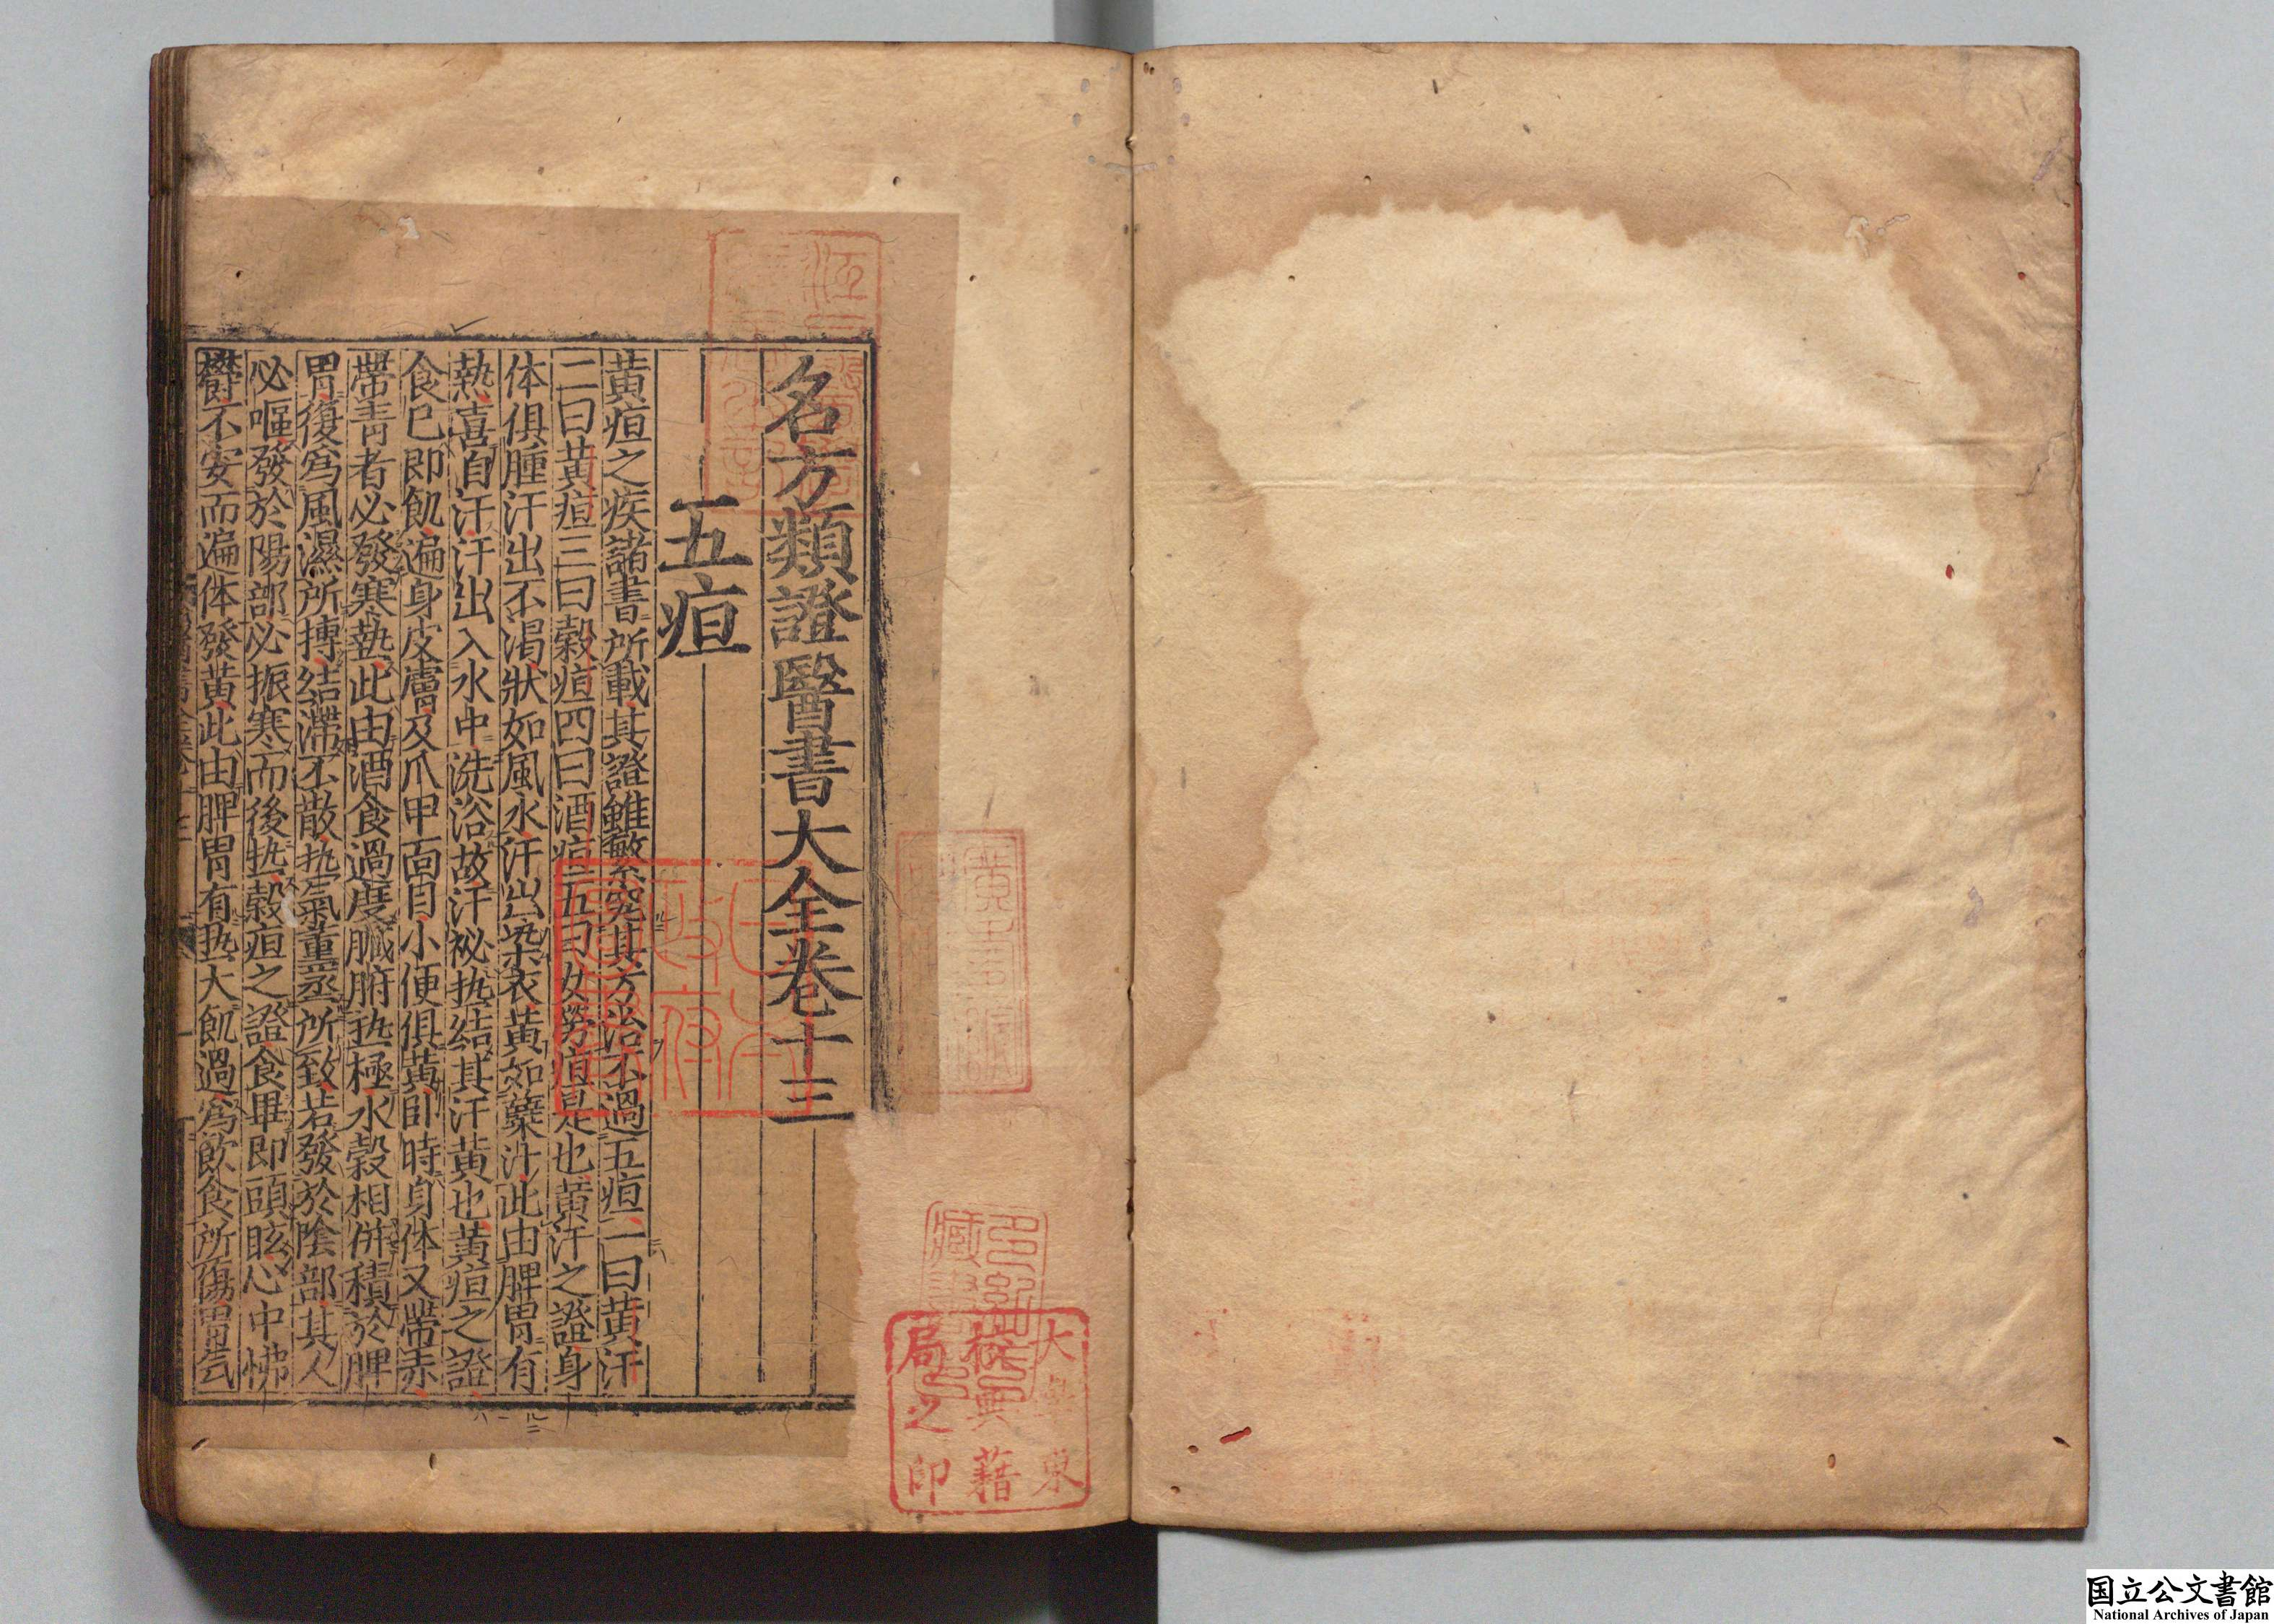 名方類證醫書大全卷十三
五疸
黃疸之疾諸書所載其證雖繁究其方治不過五疸一曰黃汗
二曰黃疸三曰穀疸四曰酒疸五曰女勞疸是也黃汗之證身
体俱腫汗出不渴狀如風水汗出染衣黃如蘗汁此由脾胃有
熱喜自汗汗出入水中洗浴故汗祕热結其汗黃也黃疸之證
食已即飢遍身皮膚及爪甲面目小便俱黃卧時身体又帶赤
帶青者必發寒熱此由酒食過度臓腑热極水穀相併積於脾
胃復為風濕所搏結滯不散热氣薰蒸所致若發於陰部其人
必嘔發於陽部必振寒而後热穀疸之證食畢即頭眩心中怫
欝不安而遍体發黃此由脾胃有热大飢過為飲食所傷胃气
日本
政府
圖書
多紀
藏書
大學東
校典籍
局之印
国立公文書館
National Archives of Japan